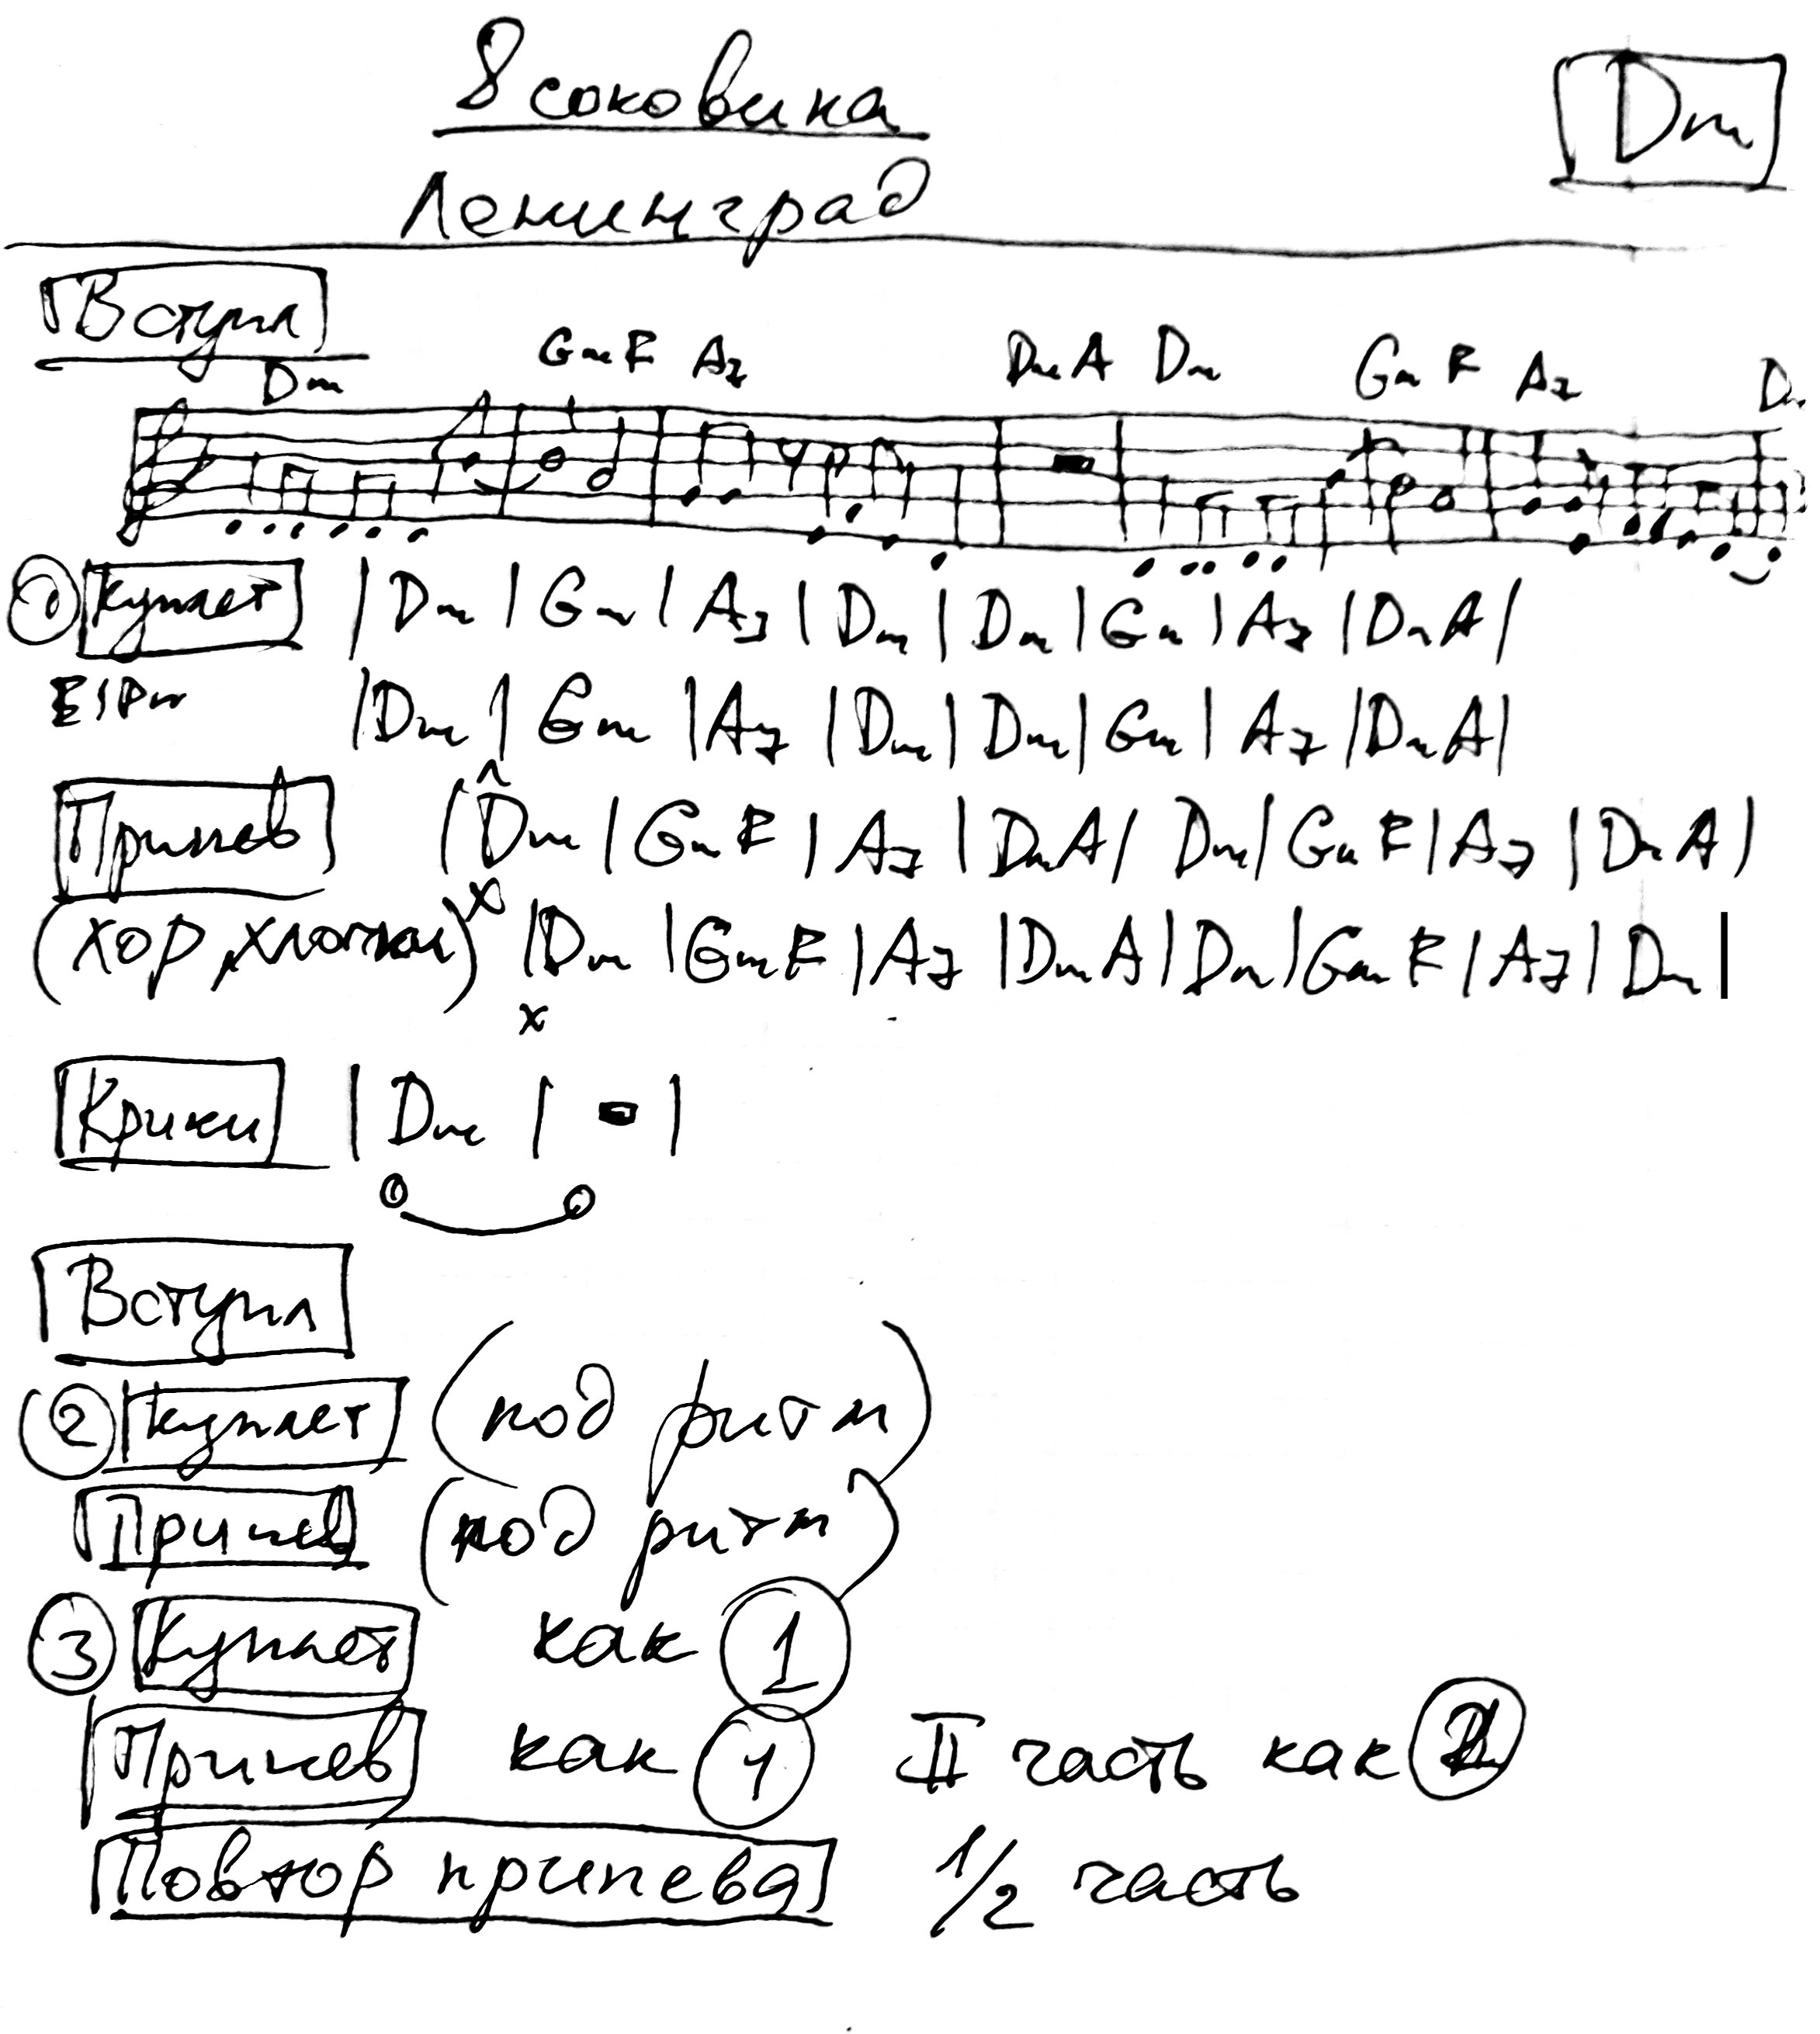 8 соковика
Dm
Ленинград
Вступл
Dm GmF A7 DmA Dm Gm F A7 Dm
① Куплет |Dm |Gm |A7 |Dm |Dm |Gm |A7 |DmA|
|Dm |Gm |A7 |Dm |Dm |Gm |A7 |DmA|
Припев |Dm |GmF |A7 |DmA| Dm |Gm F |A7 |DmA|
(хор, хлопки) |Dm |GmF |A7 |DmA |Dm |Gm F |A7 |Dm|
Крики |Dm | |
Вступл
② Куплет (под ритм)
Припев (под ритм)
③ Куплет как ①
Припев как ① II часть как
Повтор припева 1/2 часть